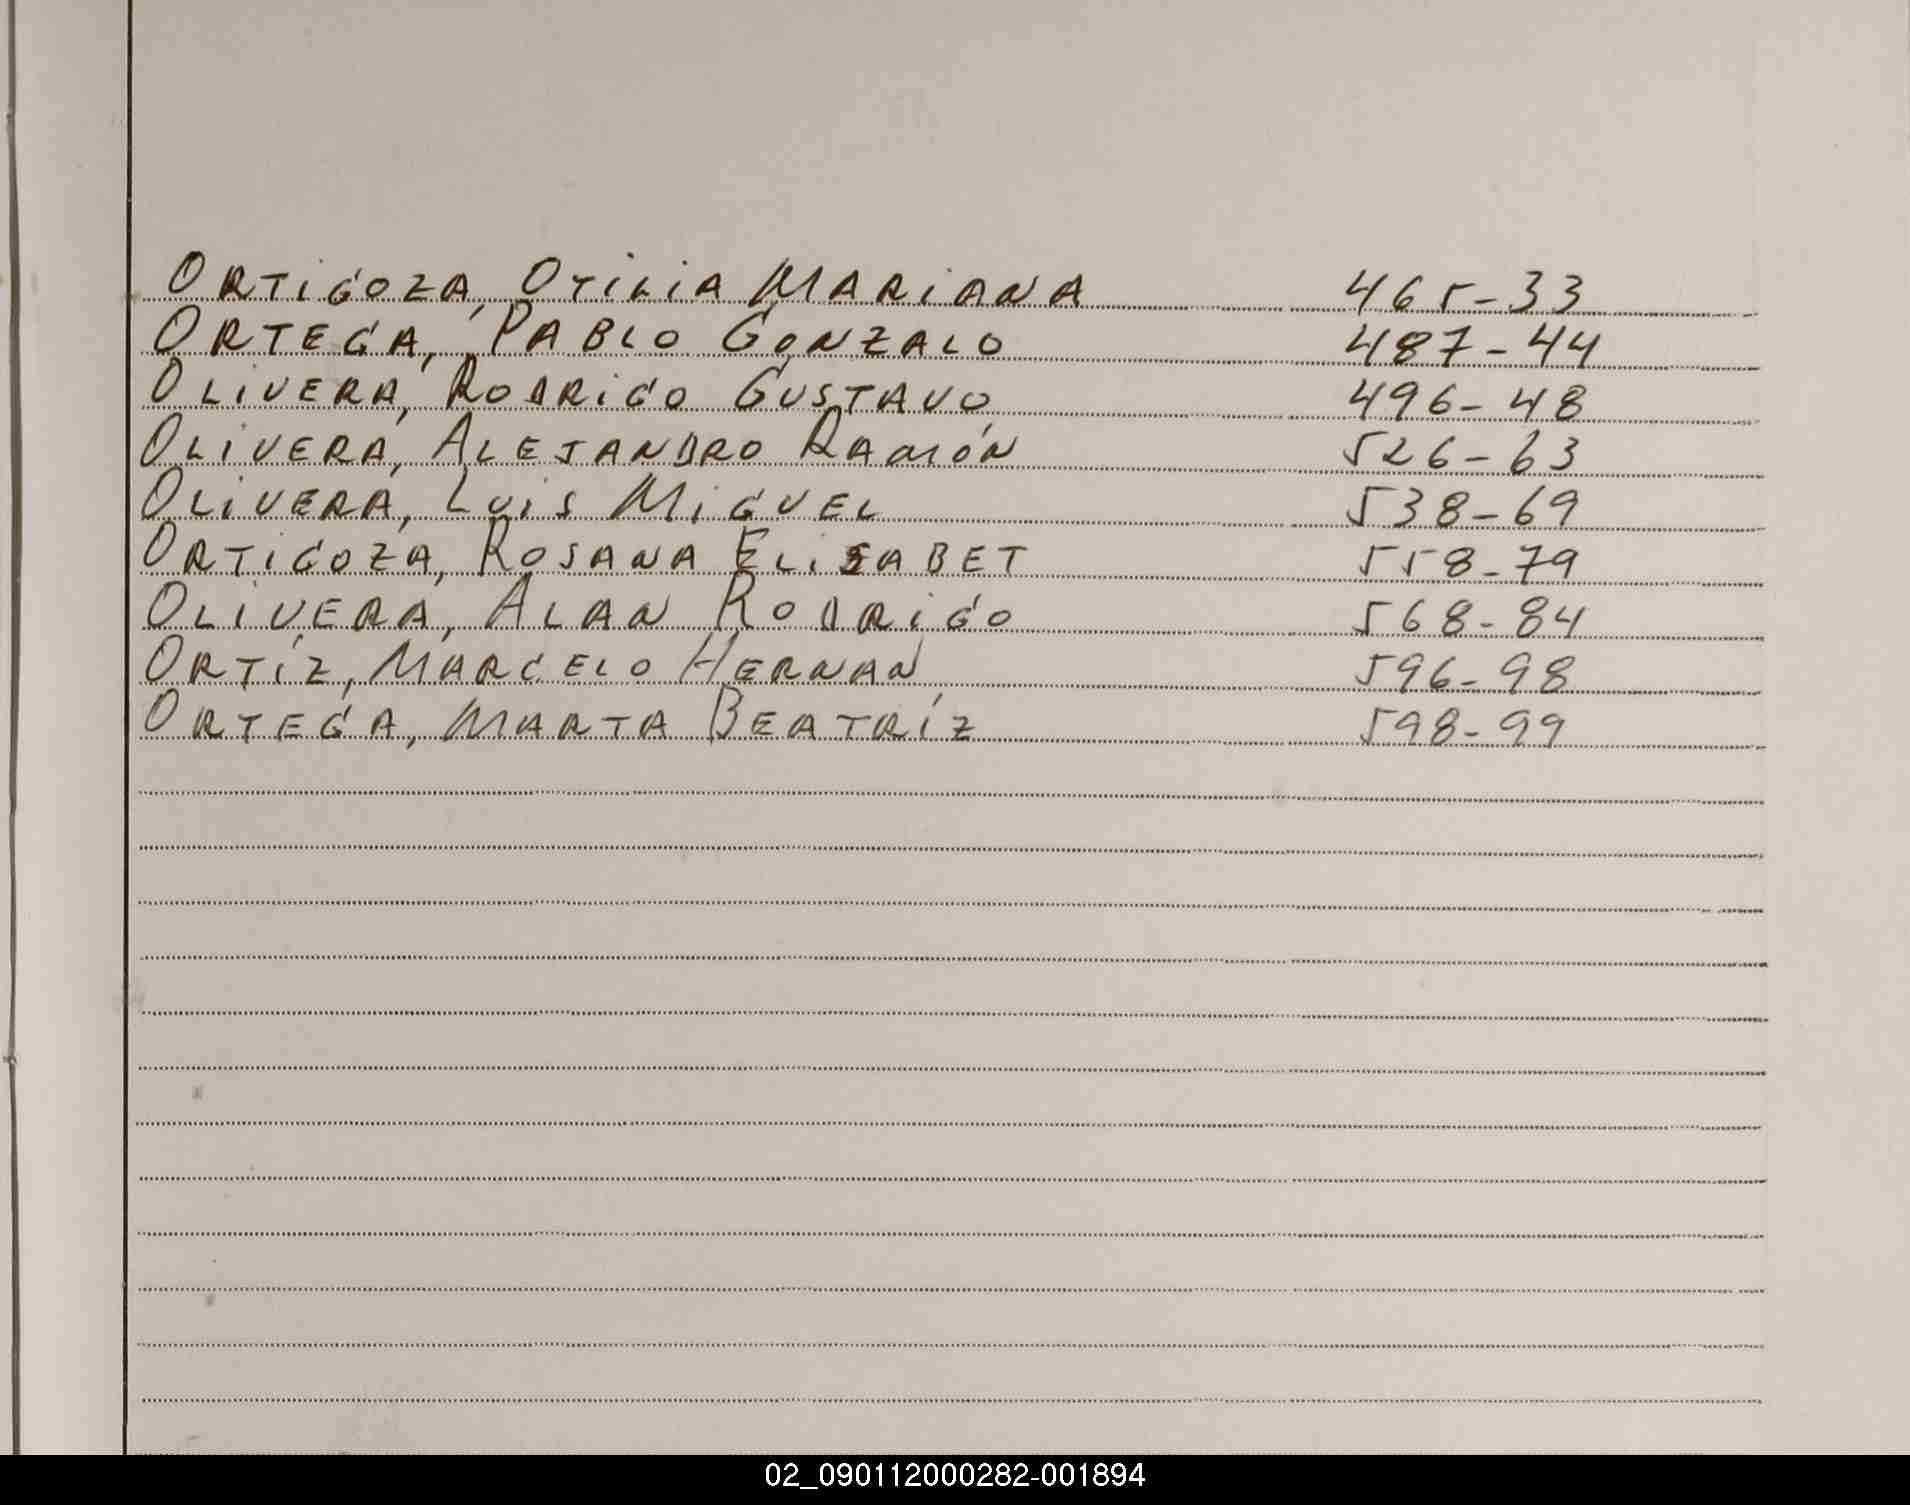 ORTIGOZA, OTILIA MARIANA 465-33
ORTEGA, PABLO GONZALO 487-44
OLIVERA, RODRIGO GUSTAVO 496-48
OLIVERA, ALEJANDRO RAMÓN 526-63
OLIVERA, LUIS MIGUEL 538-69
ORTIGOZA, ROSANA ELISABET 558-79
OLIVERA, ALAN RODRIGO 568-84
ORTÍZ, MARCELO HERNAN 596-98
ORTEGA, MARTA BEATRÍZ 598-99
02_090112000282-001894